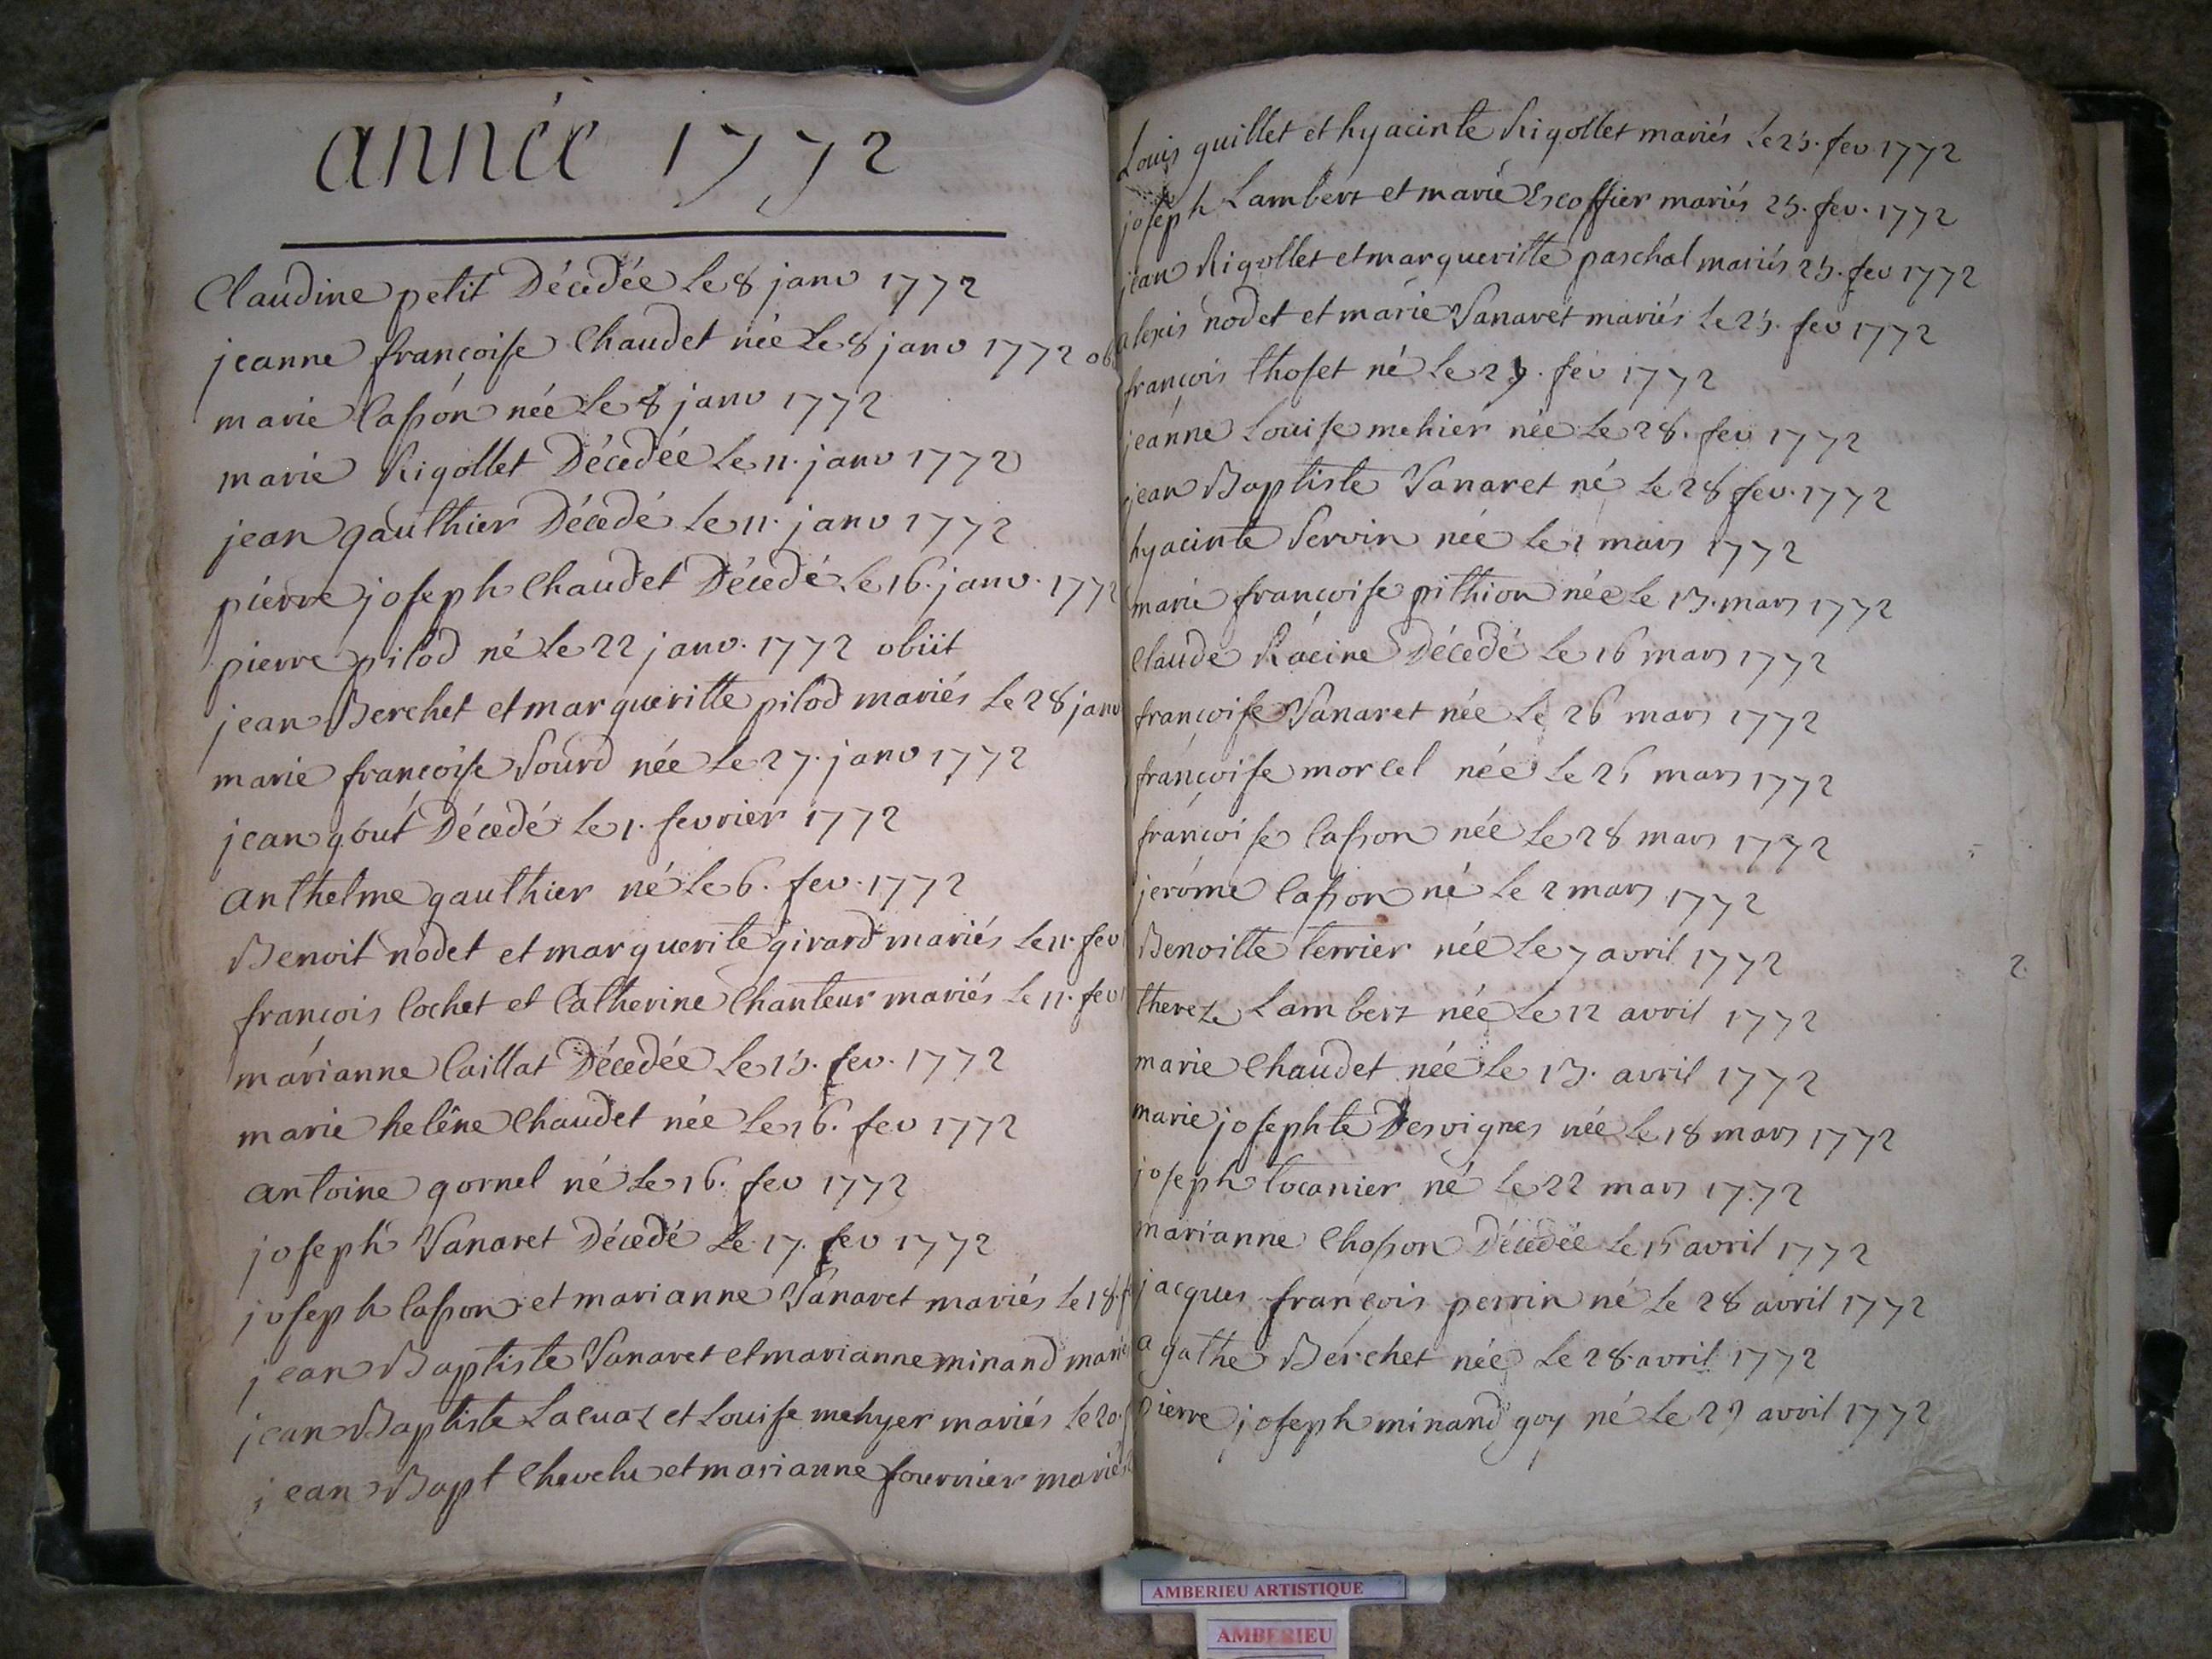 année 1772
Claudine petit Décedée Le 8 janv 1772
jeanne françoise Chaudet née Le 8 janv 1772 ob
marie Casson née Le 8 janv 1772
marie Rigollet Décedée Le 11. janv 1772
jean gauthier Décedé Le 11. janv 1772
pierre joseph Chaudet Décedé Le 16. janv. 1772
pierre pilod né Le 22 janv. 1772 obiit
jean Berchet et margueritte pilod mariés Le 28 janv
marie françoise Sourd née Le 27. janv 1772
jean gout Décedé Le 1. fevrier 1772
anthelme gauthier né Le 6. fev. 1772
Benoit nodet et marguerite girard mariés Le 11. fev
françois Cochet et Catherine Chanteur mariés Le 11. fev
marianne Caillat Décedée Le 15. fev. 1772
marie helêne Chaudet née Le 16. fev 1772
antoine gornel né Le 16. fev 1772
joseph Vanaret Décedé Le 17. fev 1772
joseph Casson et marianne Vanaret mariés Le 18. f
jean Baptiste Vanaret et marianne minand marié
jean Baptiste Lacuaz et Louise mehyer mariés Le 20.
jean Bapt Chevelu et marianne fournier mariés
Louis guillet et hyacinte Rigollet mariés Le 25. fev 1772
joseph Lambert et marie Escoffier mariés 25. fev. 1772
jean Rigollet et margueritte paschal mariés 25. fev 1772
alexis nodet et marie Vanaret mariés Le 25. fev 1772
françois thoset né Le fev 1772
jeanne Louise mehier née Le 28. fev 1772
jean Baptiste Vanaret né Le 28 fev. 1772
hyacinte Servin née Le 1 mars 1772
marie françoise pithion née Le 15. mars 1772
Claude Racine Décedé Le 16 mars 1772
françoise Vanaret née Le 26 mars 1772
françoise morcel née Le 26 mars 1772
françoise Casson née Le 28 mars 1772
jerôme Casson né Le 2 mars 1772
Benoitte terrier née Le 7 avril 1772
2.
thereze Lambert née Le 12 avril 1772
marie Chaudet née Le 15. avril 1772
marie josephte Desvignes née Le 18 mars 1772
joseph tocanier né Le 22 mars 1772
marianne Chosson Décedée Le 15 avril 1772
jacques françois perrin né Le 28 avril 1772
agathe Berchet née Le 28. avril 1772
pierre joseph minand goy né Le 29 avril 1772
AMBERIEU ARTISTIQUE
AMBERIEU